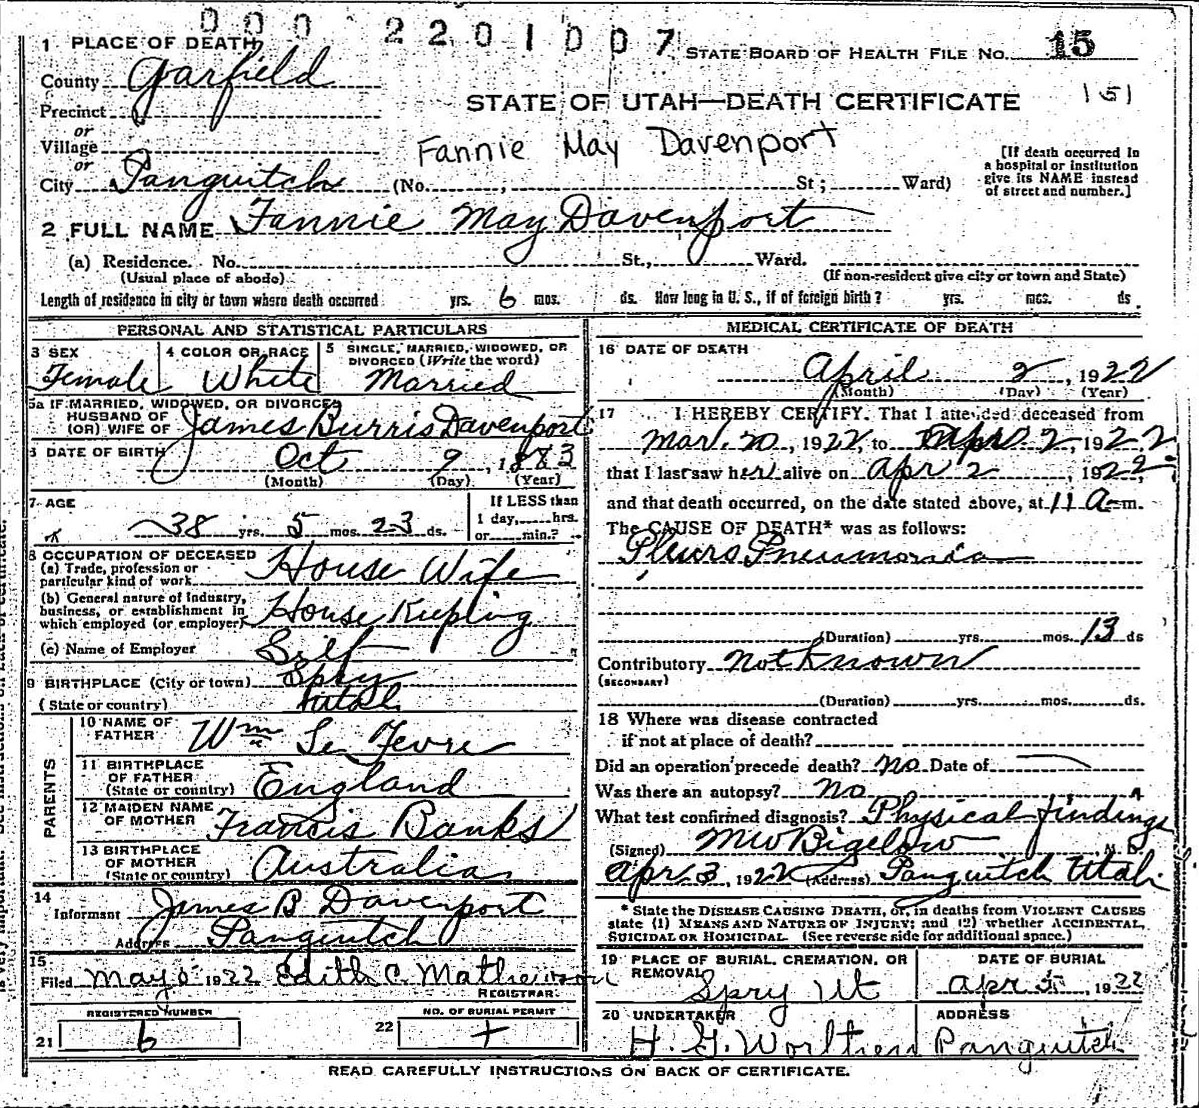 0002201007
1 PLACE OF DEATH
STATE BOARD OF HEALTH FILE No. 15
County Garfield
STATE OF UTAH—DEATH CERTIFICATE 151
Precinct
or
Village
Fannie May Davenport
or
City Panguitch (No. , St ; Ward)
[If death occurred in
a hospital or institution
give its NAME instead
of street and number.]
2 FULL NAME Fannie May Davenport
(a) Residence. No. St., Ward.
(Usual place of abode) (If non-resident give city or town and State)
Length of residence in city or town where death occurred yrs. 6 mos. ds. How long in U. S., if of foreign birth? yrs. mos. ds.
PERSONAL AND STATISTICAL PARTICULARS
3 SEX
Female
4 COLOR OR RACE
White
5 SINGLE, MARRIED, WIDOWED, OR
DIVORCED (Write the word)
Married
5a IF MARRIED, WIDOWED, OR DIVORCED
HUSBAND OF
(OR) WIFE OF James Burris Davenport
6 DATE OF BIRTH Oct 9, 1883
(Month) (Day) (Year)
7 AGE
38 yrs. 5 mos. 23 ds.
If LESS than
1 day, hrs.
or min.?
8 OCCUPATION OF DECEASED
(a) Trade, profession or
particular kind of work House Wife
(b) General nature of Industry,
business, or establishment in
which employed (or employer) House Keeping
(c) Name of Employer Self
9 BIRTHPLACE (City or town) Spry
(State or country) Utah
PARENTS
10 NAME OF
FATHER Wm Le Fevre
11 BIRTHPLACE
OF FATHER
(State or country) England
12 MAIDEN NAME
OF MOTHER Francis Banks
13 BIRTHPLACE
OF MOTHER
(State or country) Australia
14
Informant James B Davenport
Address Panguitch
15
Filed May 1922 Edith C. Mathewson
REGISTRAR.
REGISTERED NUMBER
21 6
NO. OF BURIAL PERMIT
22
MEDICAL CERTIFICATE OF DEATH
16 DATE OF DEATH
April 2, 1922
(Month) (Day) (Year)
17 I HEREBY CERTIFY, That I attended deceased from
Mar. 20, 1922, to Apr. 2, 1922
that I last saw her alive on Apr 2, 1922,
and that death occurred, on the date stated above, at 11 a m.
The CAUSE OF DEATH* was as follows:
Pleuro Pneumonia
(Duration) yrs. mos. 13 ds
Contributory not known
(SECONDARY)
(Duration) yrs. mos. ds.
18 Where was disease contracted
if not at place of death?
Did an operation precede death? no Date of
Was there an autopsy? no
What test confirmed diagnosis? Physical findings
(Signed) M W Bigelow M. D.
Apr 3, 1922 (Address) Panguitch Utah.
* State the DISEASE CAUSING DEATH, or, in deaths from VIOLENT CAUSES
state (1) MEANS AND NATURE OF INJURY; and (2) whether ACCIDENTAL,
SUICIDAL OR HOMICIDAL. (See reverse side for additional space.)
19 PLACE OF BURIAL, CREMATION, OR
REMOVAL
Spry Ut
DATE OF BURIAL
Apr 5 1922
20 UNDERTAKER
ADDRESS
Panguitch
READ CAREFULLY INSTRUCTIONS ON BACK OF CERTIFICATE.